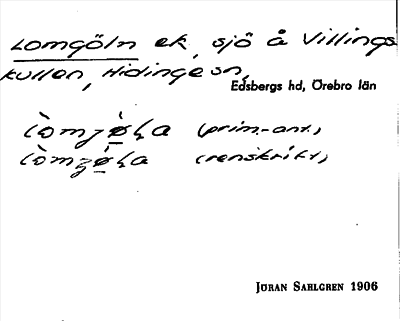 Lomgöln ek, sjö å Villings
kullen, Hidinge sn,
Edsbergs hd, Örebro län
(prim.-ant.)
(renskrift)
JÖRAN SAHLGREN 1906